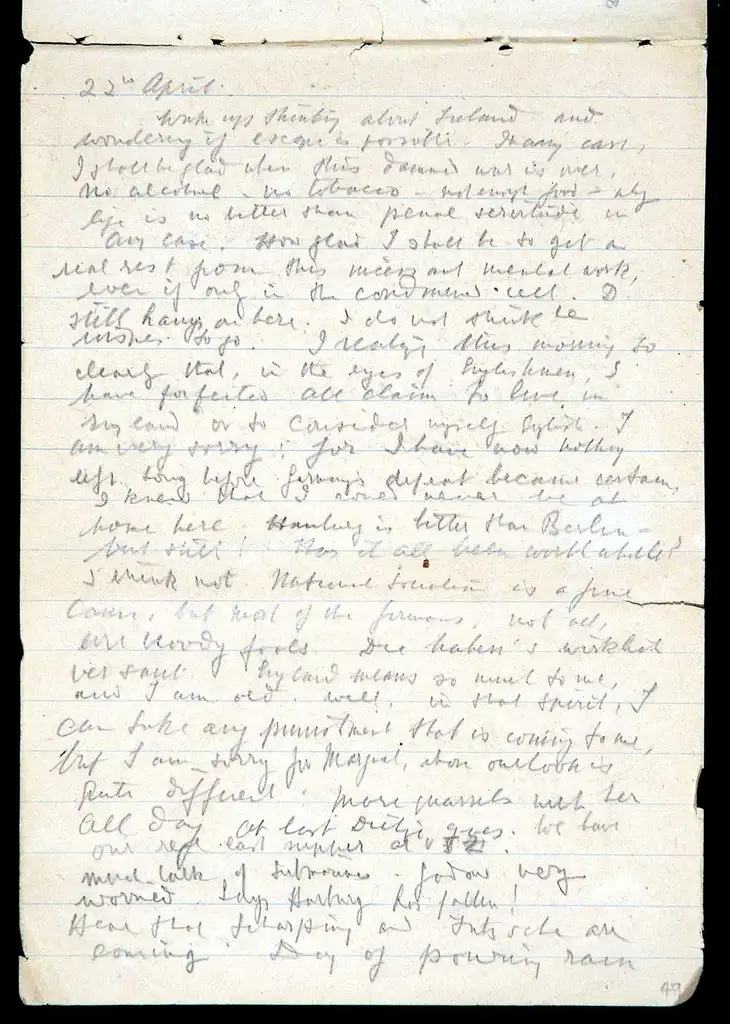 22nd April.
Wake up thinking about Ireland and
wondering if escape is possible. In any case,
I shall be glad when this damned war is over,
no alcohol - no tobacco - not enough food - my
life is no better than penal servitude in
any case. How glad I shall be to get a
real rest from this incessant mental work,
even if only in the condemned cell. D.
still hangs on here. I do not think he
wishes to go. I realize this morning so
clearly that, in the eyes of Englishmen, I
have forfeited all claim to live in
England or to consider myself English. I
am very sorry: for I have now nothing
left. Long before Germany's defeat became certain,
I knew that I could never be at
home here. Hamburg is better than Berlin -
but still! Has it all been worth while?
I think not. National Socialism is a fine
cause, but most of the Germans, not all,
are bloody fools. Die haben's wirklich
versaut. England means so much to me,
and I am old. Well, in that spirit, I
can take any punishment that is coming to me,
but I am sorry for Margaret, whose outlook is
quite different. More quarrels with her
all day. At last Dietze goes. We have
our real last supper at
much talk of . very
worried. Says Harburg has fallen!
Hear that Scharping and are
coming. Day of pouring rain
49